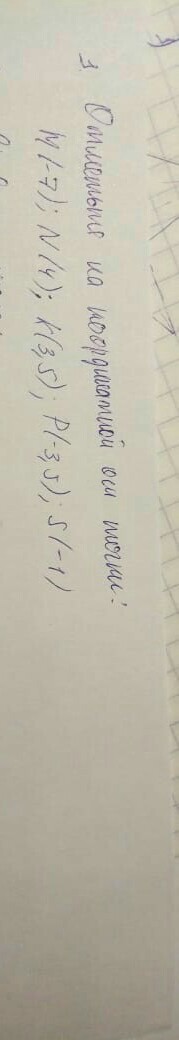 1. Отметьте на координатной оси точки:
M(-7); N(4); K(3,5); P(-3,5); S(-1)